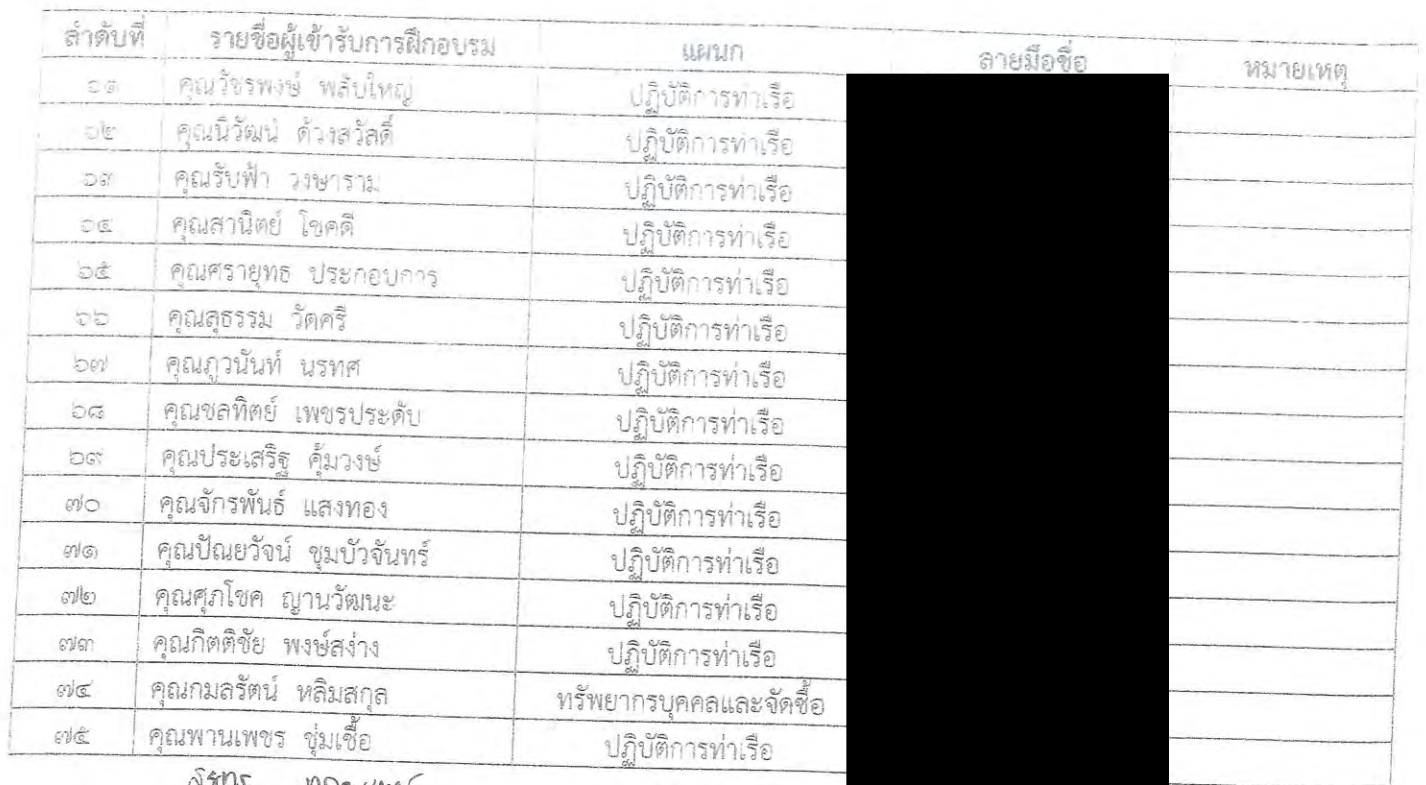 ลำดับที่ รายชื่อผู้เข้ารับการฝึกอบรม แผนก ลายมือชื่อ หมายเหตุ
๖๑ คุณวัชรพงษ์ พลับใหญ่ ปฏิบัติการท่าเรือ
๖๒ คุณนิวัฒน์ ด้วงสวัสดิ์ ปฏิบัติการท่าเรือ
๖๓ คุณรับฟ้า วงษาราม ปฏิบัติการท่าเรือ
๖๔ คุณสานิตย์ โชคดี ปฏิบัติการท่าเรือ
๖๕ คุณศรายุทธ ประกอบการ ปฏิบัติการท่าเรือ
๖๖ คุณสุธรรม วัดศรี ปฏิบัติการท่าเรือ
๖๗ คุณภูวนันท์ นรทศ ปฏิบัติการท่าเรือ
๖๘ คุณชลทิตย์ เพชรประดับ ปฏิบัติการท่าเรือ
๖๙ คุณประเสริฐ คุ้มวงษ์ ปฏิบัติการท่าเรือ
๗๐ คุณจักรพันธ์ แสงทอง ปฏิบัติการท่าเรือ
๗๑ คุณปัณยวัจน์ ชุมบัวจันทร์ ปฏิบัติการท่าเรือ
๗๒ คุณศุภโชค ญานวัฒนะ ปฏิบัติการท่าเรือ
๗๓ คุณกิตติชัย พงษ์สง่าง ปฏิบัติการท่าเรือ
๗๔ คุณกมลรัตน์ หลิมสกุล ทรัพยากรบุคคลและจัดซื้อ
๗๕ คุณพานเพชร ชุ่มเชื้อ ปฏิบัติการท่าเรือ